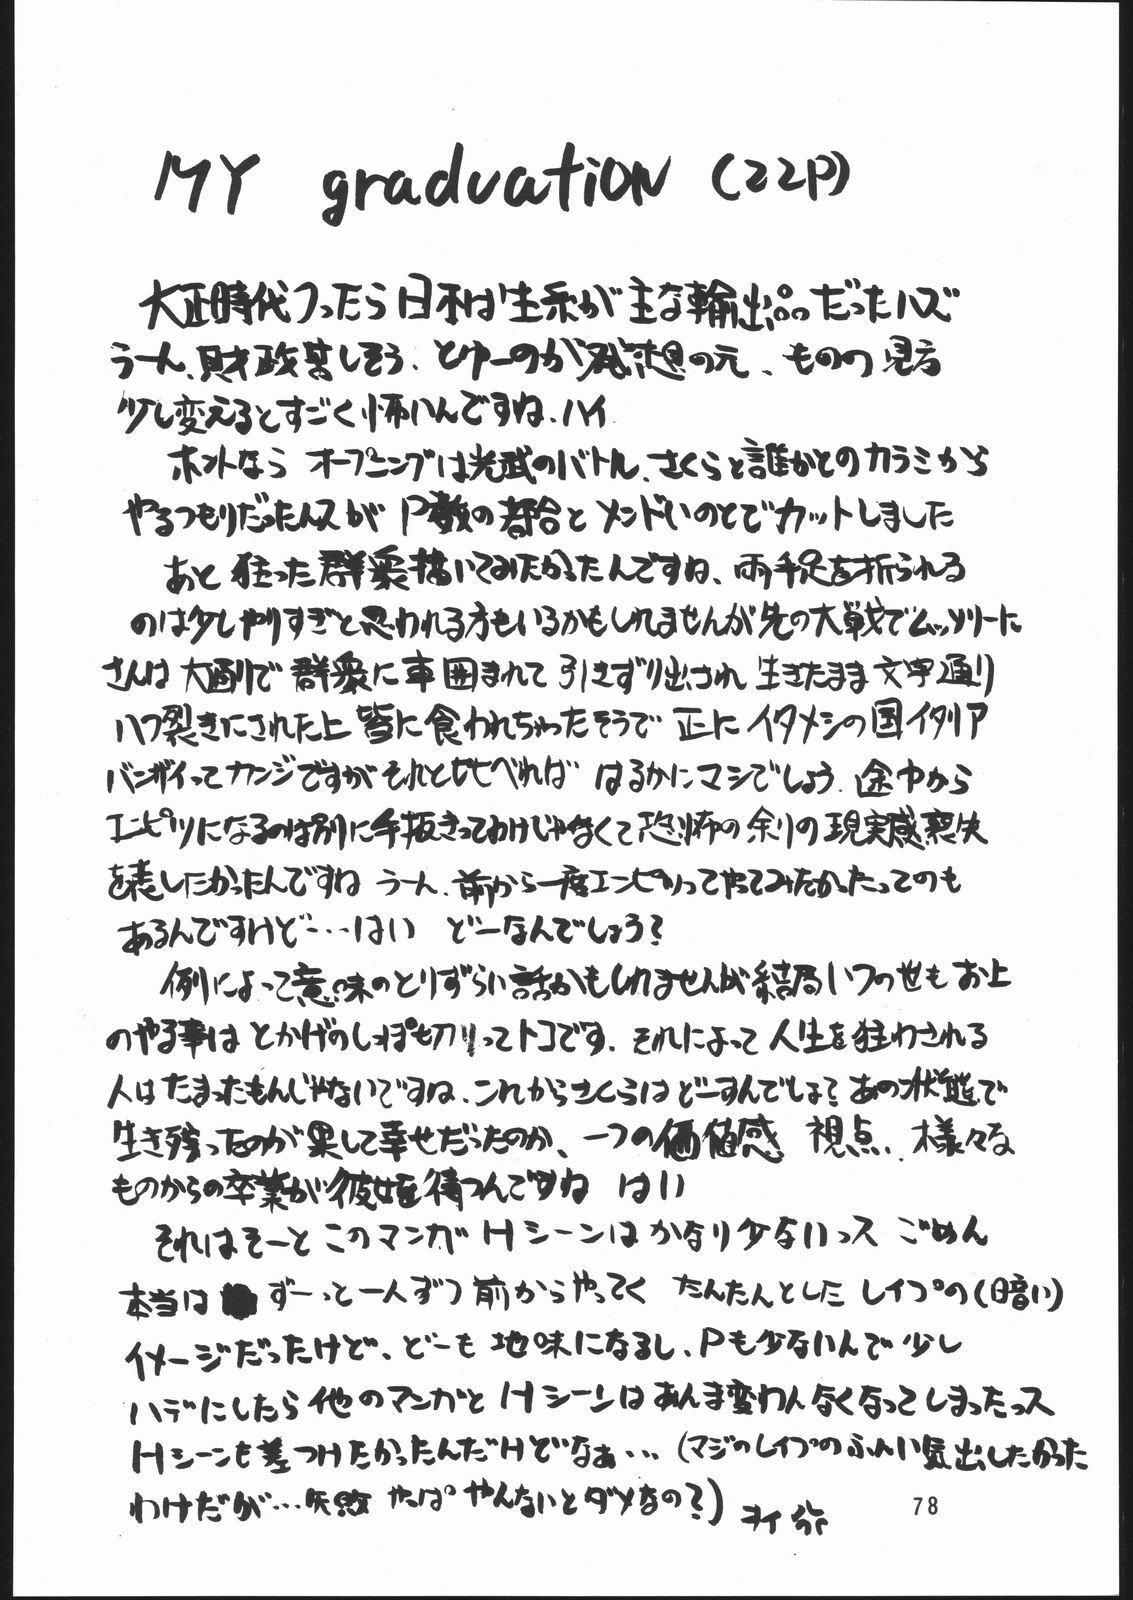 MY graduation (22P)
大正時代つったら日本は生糸が主な輸出品だったハズ
うーん、財政苦しそう、とゆーのが発想の元、ものの見方
少し変えるとすごく怖いんですね、ハイ
ホントなら オープニングは光武のバトル、さくらと誰かとのカラミから
やるつもりだったんスが P数の都合とメンドいのとでカットしました
あと 狂った群衆描いてみたかったんですね、両手足を折られる
のは少しやりすぎと思われる方もいるかもしれませんが先の大戦でムッソリーニ
さんは 大通りで 群衆に車囲まれて 引きずり出され 生きたまま文字通り
八つ裂きにされた上 皆に食われちゃったそうで 正にイタメシの国イタリア
バンザイってカンジですがそれと比べれば はるかにマシでしょう、途中から
エンピツになるのは別に手抜きってわけじゃなくて恐怖の余りの現実感喪失
を表したかったんですね うーん、前から一度エンピツってやってみたかったってのも
あるんですけど……はい どーなんでしょう?
例によって意味のとりずらい話かもしれませんが結局いつの世もお上
のやる事は とかげのしっぽ切りってトコです、それによって人生を狂わされる
人はたまったもんじゃないですね、これからさくらはどーすんでしょ?あの状態で
生き残ったのが果して幸せだったのか、一つの価値感 視点、様々な
ものからの卒業が彼女を待つんですね はい
それはそーとこのマンガHシーンはかなり少ないっス ごめん
本当は ずーっと一人ずつ前からやってく たんたんとした レイプの(暗い)
イメージだったけど、どーも 地味になるし、Pも少ないんで少し
ハデにしたら他のマンガとHシーンはあんま変わんなくなってしまったっス
Hシーンも差つけたかったんだけどなぁ…(マジのレイプのふんい気出したかった
わけだが…失敗 やっぱ やんないとダメなの?)
78